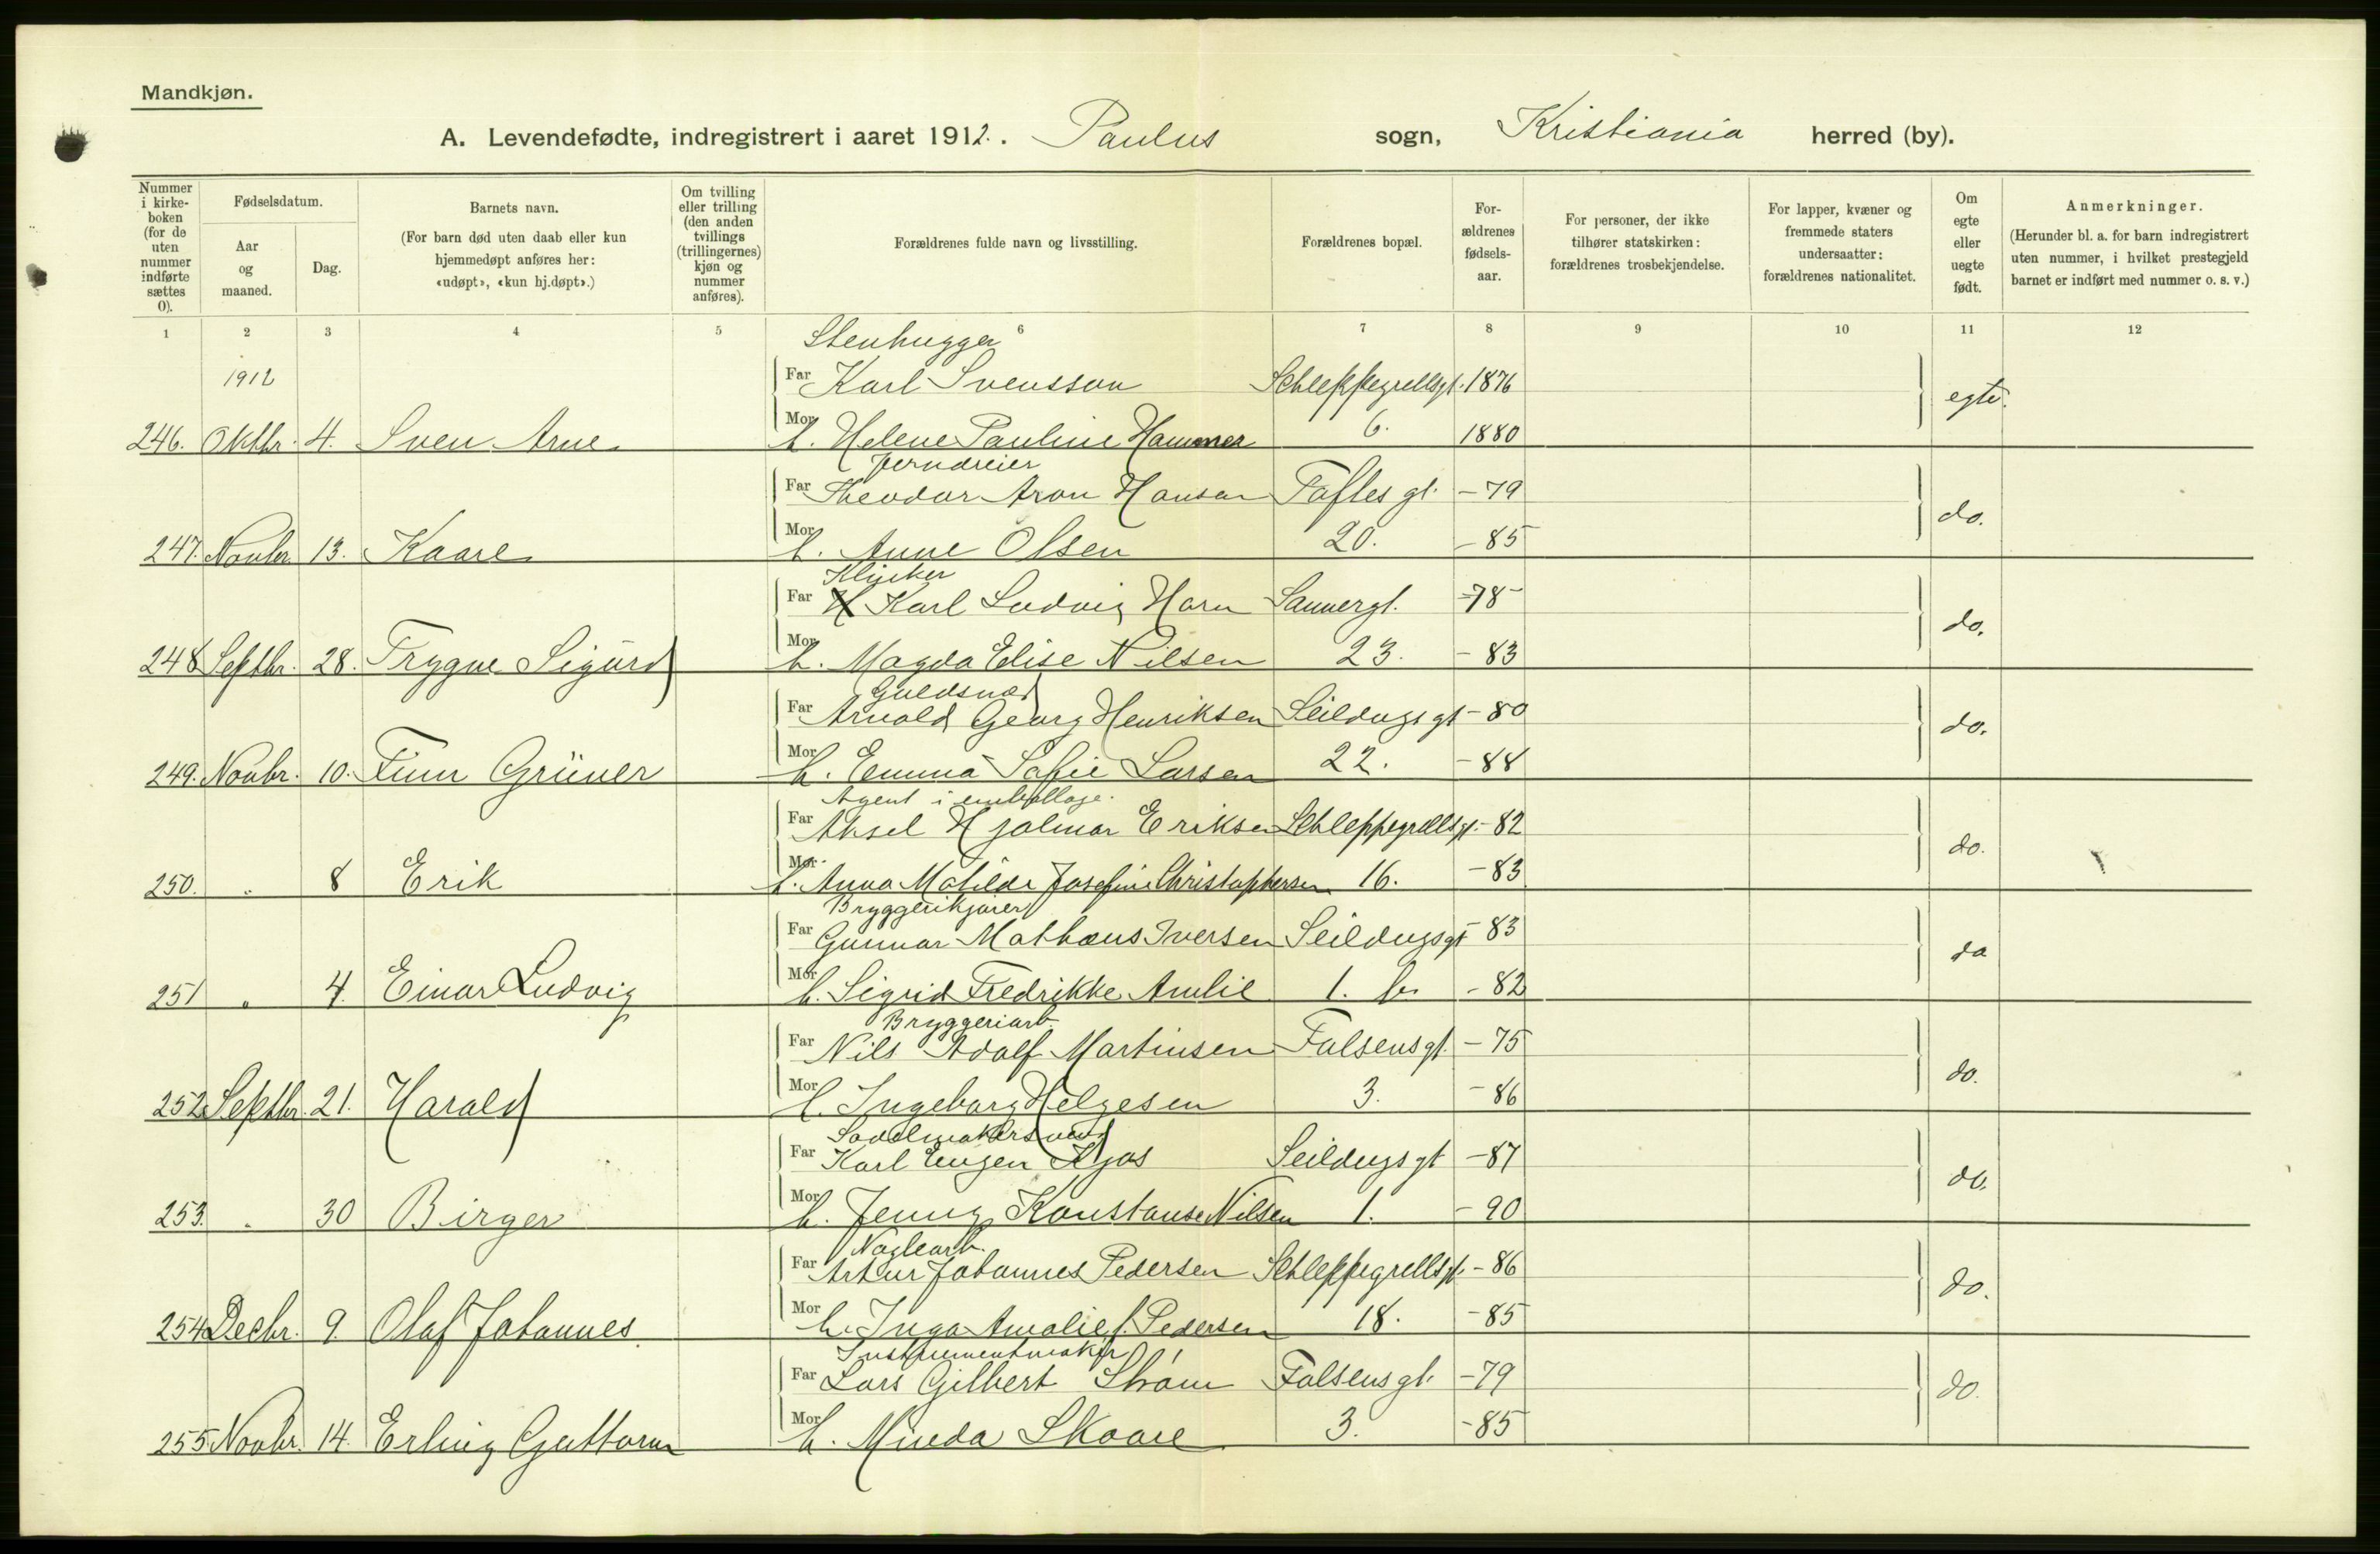 Mandkjøn.
A. Levendefødte, indregistrert i aaret 1912. Paulus sogn, Kristiania herred (by).
Nummer i kirkeboken (for de uten nummer indførte sættes 0).
Fødselsdatum.
Aar og maaned.
Dag.
Barnets navn.
(For barn død uten daab eller kun hjemmedøpt anføres her: «udøpt», «kun hj.døpt».)
Om tvilling eller trilling (den anden tvillings (trillingernes) kjøn og nummer anføres).
Forældrenes fulde navn og livsstilling.
Forældrenes bopæl.
Forældrenes fødselsaar.
For personer, der ikke tilhører statskirken: forældrenes trosbekjendelse.
For lapper, kvæner og fremmede staters undersaatter: forældrenes nationalitet.
Om egte eller uegte født.
Anmerkninger.
(Herunder bl. a. for barn indregistrert uten nummer, i hvilket prestegjeld barnet er indført med nummer o. s. v.)
1 2 3 4 5 6 7 8 9 10 11 12
Stenhugger
1912 Far Karl Svensson Schleppegrellsgt. 1876 egte.
246. Oktbr. 4. Sven Arne Mor h. Helene Pauline Hammer 6. 1880
Jerndreier
Far Theodor Aron Hansen Toftes gt. -79 do.
247. Novbr. 13. Kaare Mor h. Anne Olsen 20. -85
Klinker
Far Karl Ludvig Horn Sannergt. -78 do.
248 Septbr. 28. Trygve Sigurd Mor h. Magda Elise Nilsen 23. -83
Guldsmed
Far Arnold Georg Henriksen Seildugsgt -80 do.
249. Novbr. 10. Finn Grüner Mor h. Emma Sofie Larsen 22. -88
Agent i emballage.
Far Aksel Hjalmar Eriksen Schleppegrellsgt. -82 do.
250. " 8 Erik Mor h. Anna Matilde Josefine Christophersen 16. -83
Bryggerikjører
Far Gunnar Mathæus Iversen Seildugsgt -83 do
251 " 4. Einar Ludvig Mor h. Sigrid Fredrikke Amlie 1. b. -82
Bryggeriarb.
Far Nils Adolf Martinsen Falsensgt. -75 do.
252 Septbr. 21. Harald Mor h. Ingeborg Helgesen 3. -86
Sadelmakersvend
Far Karl Eugen Kjos Seildugsgt -87 do.
253. " 30 Birger Mor h. Jenny Konstanse Nilsen 1. -90
Naglearb.
Far Artur Johannes Pedersen Schleppegrellsgt. -86 do.
254 Decbr. 9. Olaf Johannes Mor h. Inga Amalie f. Pedersen 18. -85
Instrumentmaker
Far Lars Gilbert Strøm Falsensgt. -79 do.
255 Novbr. 14. Erling Guttorm Mor h. Minda Skaare 3. -85